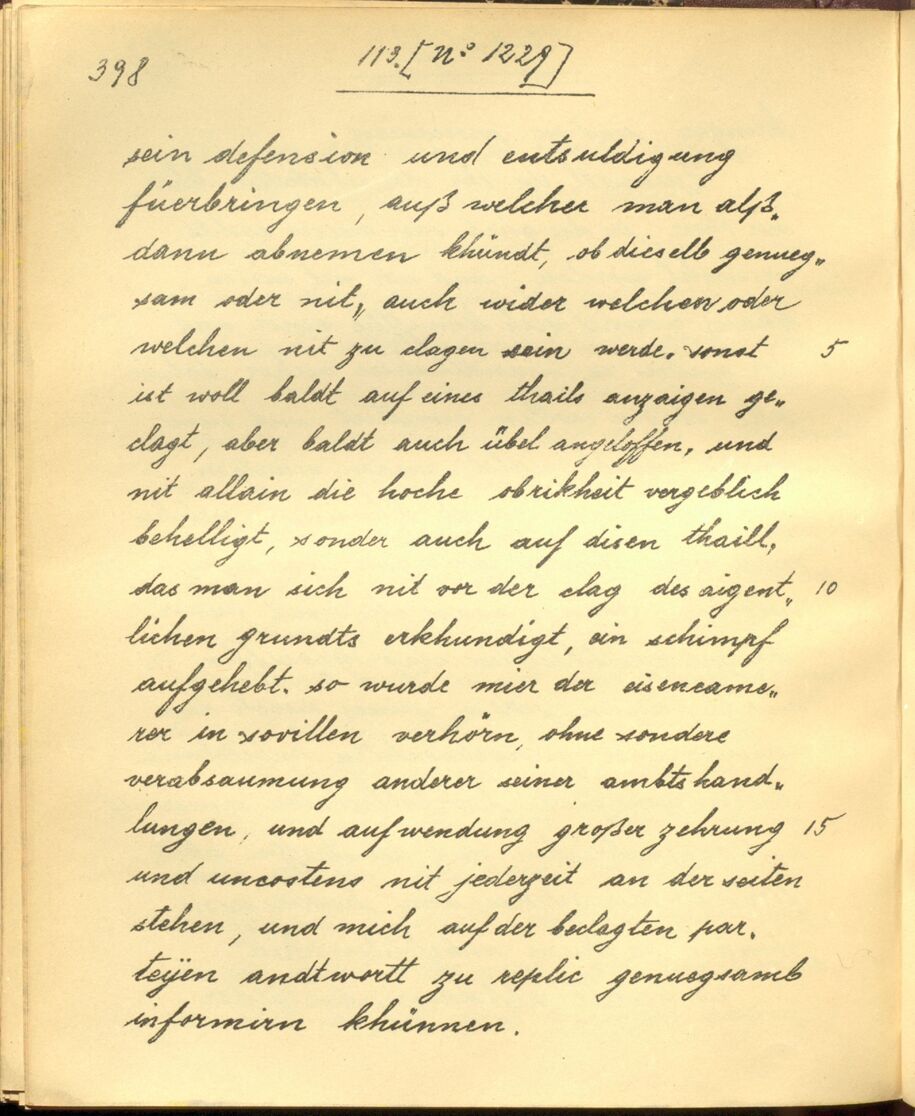 398
113. [Nº 1229]
sein defension und entsuldigung
füerbringen, auß welcher man alß„
dann abnemen khündt, ob dieselb genueg„
sam oder nit„ auch wider welchen oder
welchen nit zu clagen sein werde. sonst 5
ist woll baldt auf eines thails anzaigen ge„
clagt, aber baldt auch übel angeloffen, und
nit allain die hoche obrikheit vergeblich
behelligt, sonder auch auf disen thaill,
das man sich nit vor der clag des aigent„ 10
lichen grundts erkhundigt, ein schimpf
aufgehebt. so wurde mier der eisencame„
rer in sovillen verhörn, ohne sondere
verabsaumung anderer seiner ambtshand„
lungen, und aufwendung großer zehrung 15
und uncostens nit jederzeit an der seiten
stehen, und mich auf der beclagten par„
teÿen andtwortt zu replic genuegsamb
informirn khünnen.